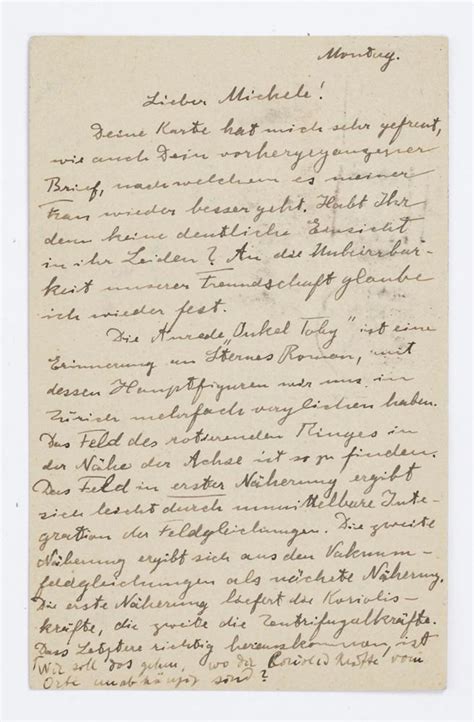 Montag.
Lieber Michele!
Deine Karte hat mich sehr gefreut,
wie auch Dein vorhergegangener
Brief, nach welchem es meiner
Frau wieder besser geht. Habt Ihr
denn keine deutliche Einsicht
in ihr Leiden? An die Unbeirrbar-
keit unserer Freundschaft glaube
ich wieder fest.
Die Anrede "Onkel Toby" ist eine
Erinnerung an Sternes Roman, mit
dessen Hauptfiguren wir uns in
Zürich mehrfach verglichen haben.
Das Feld des rotierenden Ringes in
der Nähe der Achse ist so zu finden.
Das Feld in erster Näherung ergibt
sich leicht durch unmittelbare Inte-
gration der Feldgleichungen. Die zweite
Näherung ergibt sich aus den Vakuum-
feldgleichungen als nächste Näherung.
Die erste Näherung liefert die Koriolis-
kräfte, die zweite die Zentrifugalkräfte.
Dass Letztere richtig herauskommen, ist
Wie soll das gehn, wo die Coriolis Kräfte vom
Orte unabhängig sind?